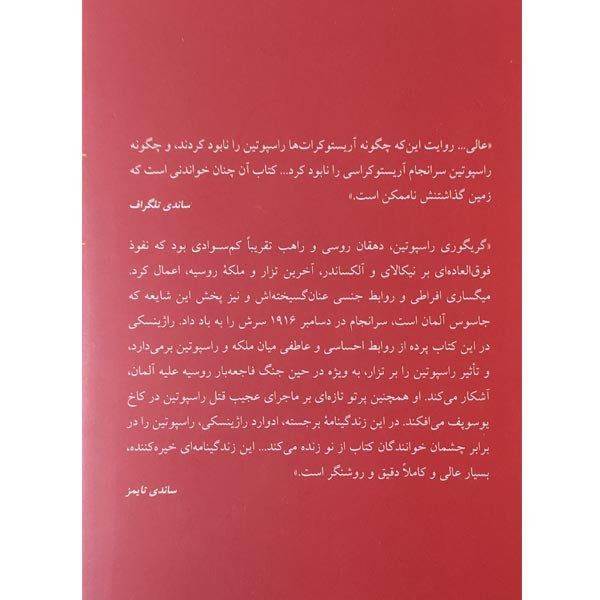 «عالی... روایت این‌که چگونه آریستوکرات‌ها راسپوتین را نابود کردند، و چگونه
راسپوتین سرانجام آریستوکراسی را نابود کرد... کتاب آن چنان خواندنی است که
زمین گذاشتنش ناممکن است.»
ساندی تلگراف
«گریگوری راسپوتین، دهقان روسی و راهب تقریباً کم‌سوادی بود که نفوذ
فوق‌العاده‌ای بر نیکالای و آلکساندر، آخرین تزار و ملکهٔ روسیه، اعمال کرد.
میگساری افراطی و روابط جنسی عنان‌گسیخته‌اش و نیز پخش این شایعه که
جاسوس آلمان است، سرانجام در دسامبر ۱۹۱۶ سرش را به باد داد. راژینسکی
در این کتاب پرده از روابط احساسی و عاطفی میان ملکه و راسپوتین برمی‌دارد،
و تأثیر راسپوتین را بر تزار، به ویژه در حین جنگ فاجعه‌بار روسیه علیه آلمان،
آشکار می‌کند. او همچنین پرتو تازه‌ای بر ماجرای عجیب قتل راسپوتین در کاخ
یوسوپف می‌افکند. در این زندگینامهٔ برجسته، ادوارد راژینسکی، راسپوتین را در
برابر چشمان خوانندگان کتاب از نو زنده می‌کند... این زندگینامه‌ای خیره‌کننده،
بسیار عالی و کاملاً دقیق و روشنگر است.»
ساندی تایمز